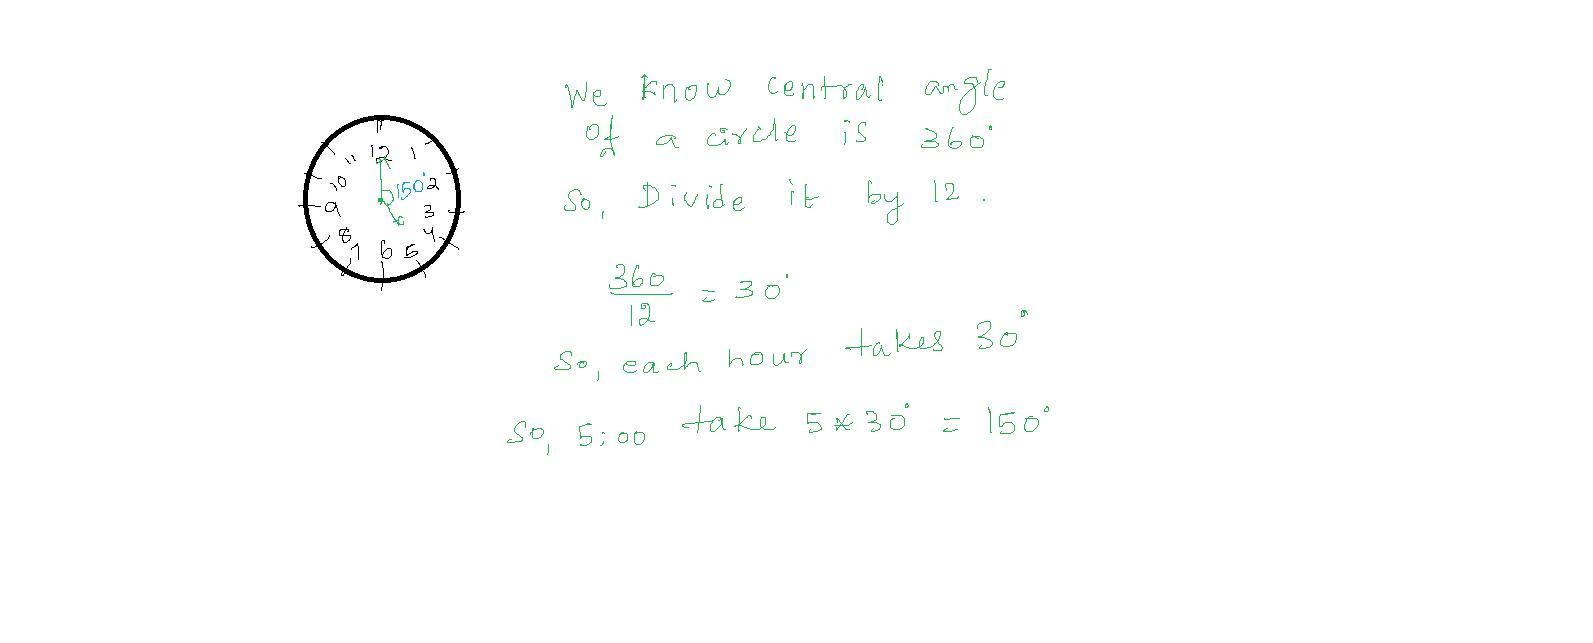 We know central angle
of a circle is 360°
So, Divide it by 12.
360
12
= 30°
So, each hour takes 30°
So, 5:00 take 5*30° = 150°
12
1
2
3
4
5
6
7
8
9
10
11
150°